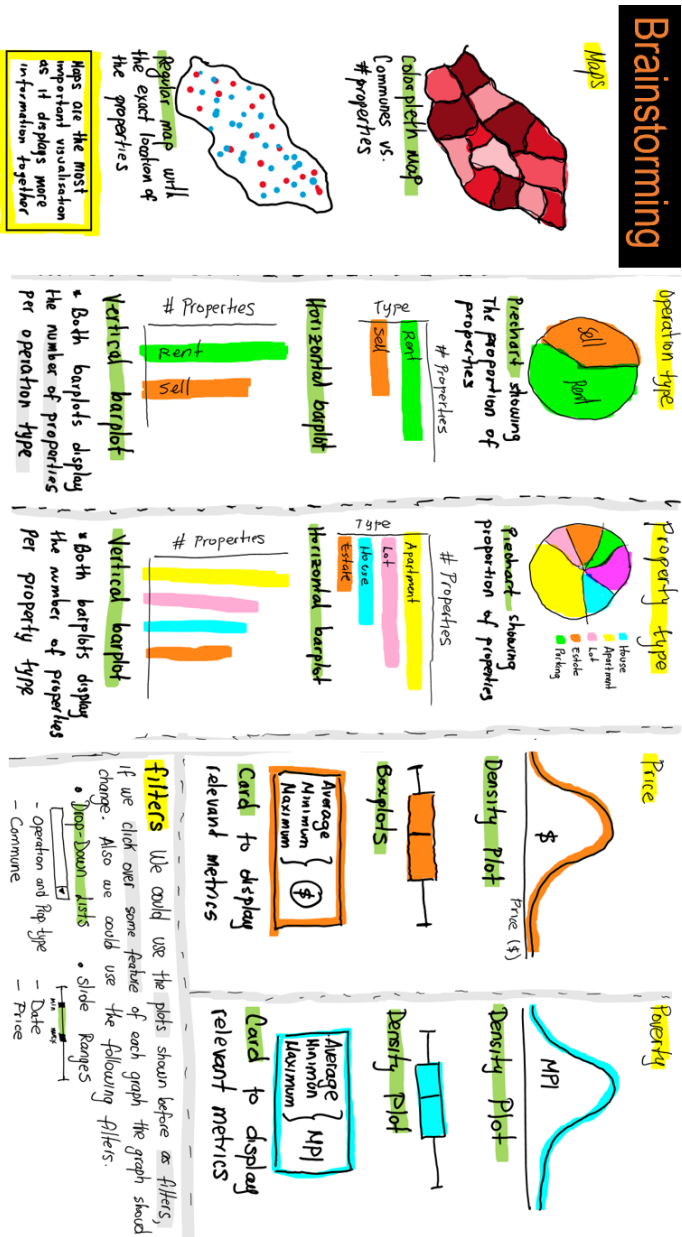 Brainstorming
Maps
Colorpleth map
Communes vs.
#properties
Regular map with
the exact location of
the properties
Maps are the most
important visualisation
as it displays more
information together
Operation type
Sell
Rent
Piechart showing
The proportion of
properties
# Properties
Type
Rent
Sell
Horizontal barplot
# Properties
Rent
Sell
Vertical barplot
* Both barplots display
the number of properties
per operation type
Property type
House
Apartment
Lot
Estate
Parking
Piechart showing
proportion of properties
# Properties
Type
Apartment
Lot
House
Estate
Horizontal barplot
# Properties
Vertical barplot
* Both barplots display
the number of properties
Per property type
Price
$
Price ($)
Density Plot
Boxplots
Average
Minimum
Maximum
$
Card to display
relevant metrics
Poverty
MPI
Density Plot
Density Plot
Average
Minimon
Maximum
MPI
Card to display
relevant metrics
filters We could use the plots shown before as filters,
if we click over some feature of each graph the graph should
change. Also we could use the following filters.
• Drop-Down Lists
- Operation and Prop type
- Commune
• Slide Ranges
min max
- Date
- Price